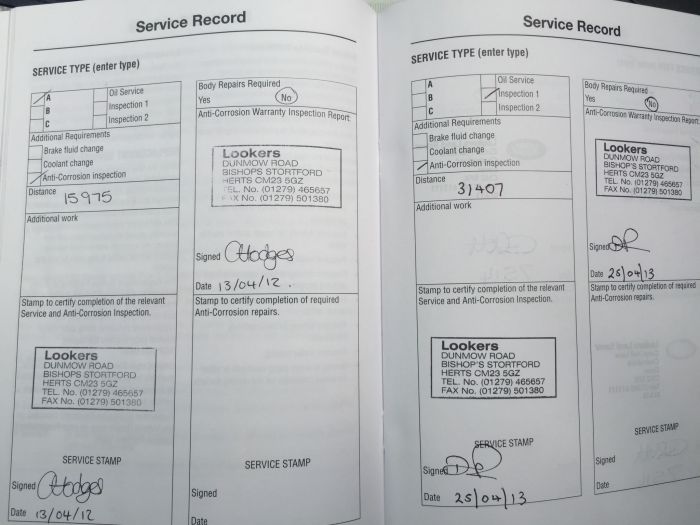 Service Record
SERVICE TYPE (enter type)
A
B
C
Oil Service
Inspection 1
Inspection 2
Additional Requirements
Brake fluid change
Coolant change
Anti-Corrosion inspection
Distance
15975
Additional work
Stamp to certify completion of the relevant
Service and Anti-Corrosion Inspection.
Lookers
DUNMOW ROAD
BISHOPS STORTFORD
HERTS CM23 5GZ
TEL. No. (01279) 465657
FAX No. (01279) 501380
SERVICE STAMP
Signed Hodges
Date 13/04/12
Body Repairs Required
Yes No
Anti-Corrosion Warranty Inspection Report
Lookers
DUNMOW ROAD
BISHOPS STORTFORD
HERTS CM23 5GZ
TEL. No. (01279) 465657
FAX No. (01279) 501380
Signed Hodges
Date 13/04/12.
Stamp to certify completion of required
Anti-Corrosion repairs.
SERVICE STAMP
Signed
Date
Service Record
SERVICE TYPE (enter type)
A
B
C
Oil Service
Inspection 1
Inspection 2
Additional Requirements
Brake fluid change
Coolant change
Anti-Corrosion inspection
Distance
31407
Additional work
Stamp to certify completion of the relevant
Service and Anti-Corrosion Inspection.
Lookers
DUNMOW ROAD
BISHOP'S STORTFORD
HERTS CM23 5GZ
TEL. No. (01279) 465657
FAX No. (01279) 501380
SERVICE STAMP
Signed
Date 25/04/13
Body Repairs Required
Yes No
Anti-Corrosion Warranty Inspection Report
Lookers
DUNMOW ROAD
BISHOP'S STORTFORD
HERTS CM23 5GZ
TEL. No. (01279) 465657
FAX No. (01279) 501380
Signed
Date 25/04/13
Stamp to certify completion of required
Anti-Corrosion repairs.
SERVICE STAMP
Signed
Date